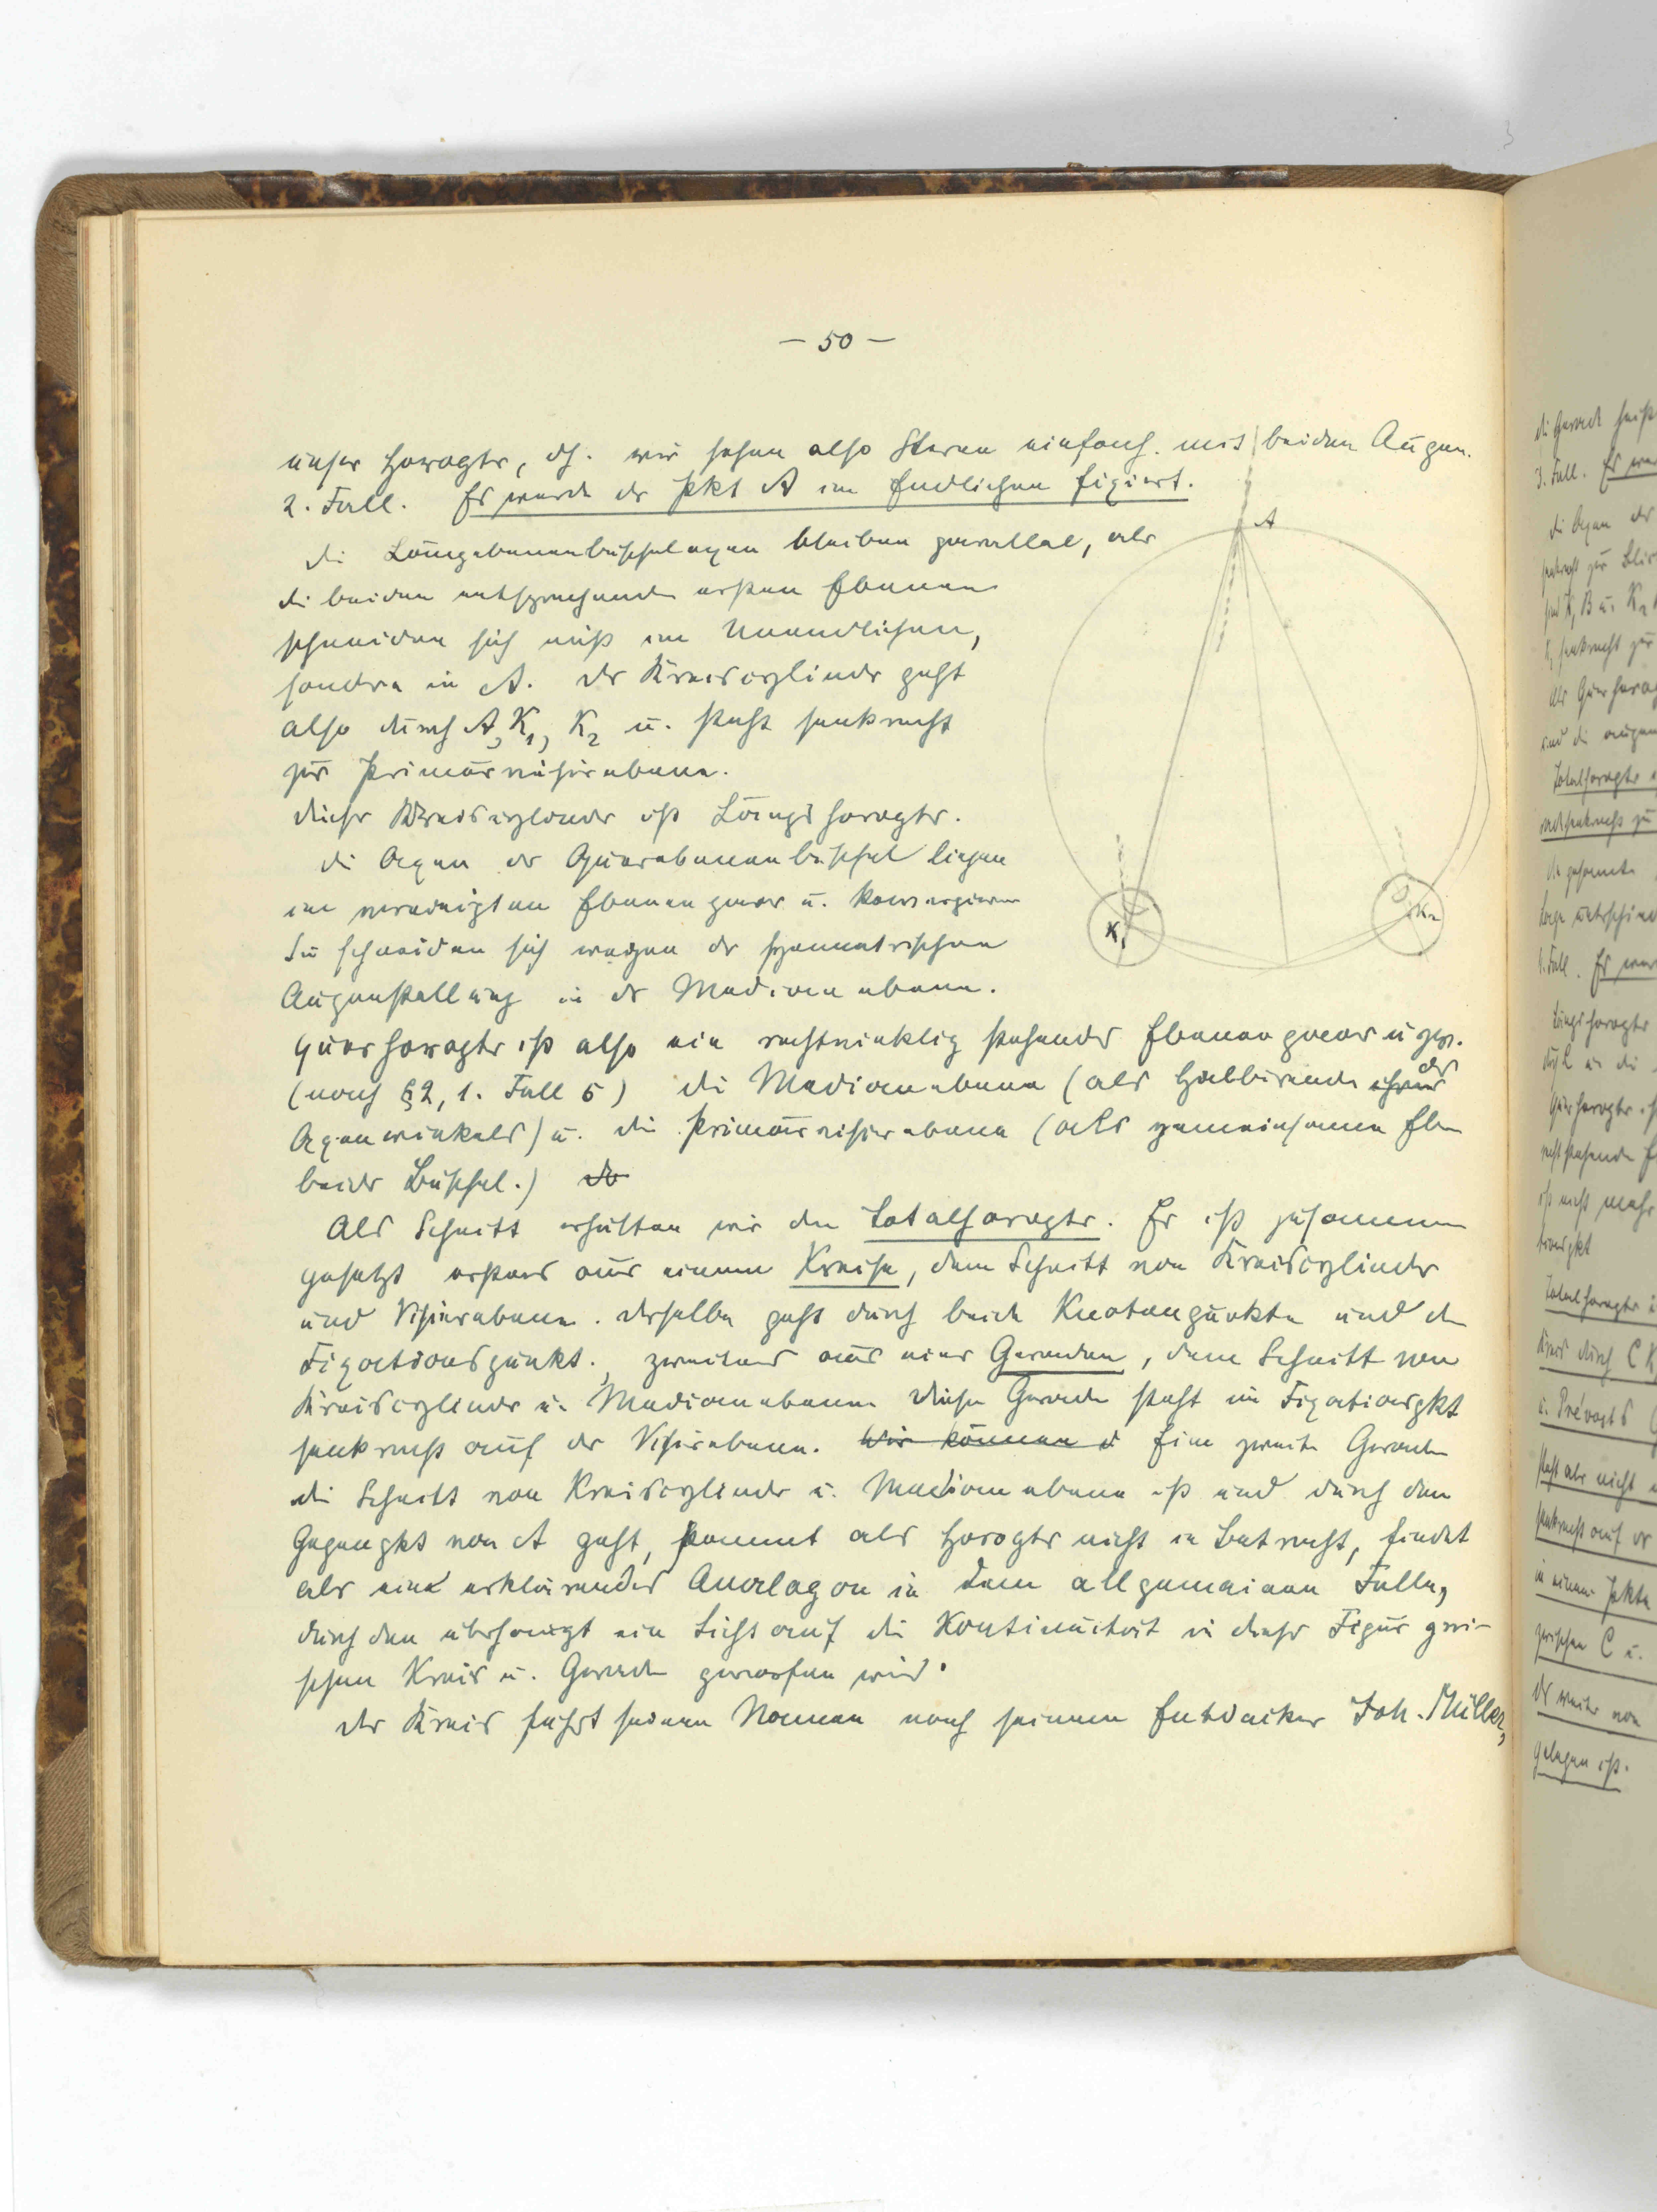 – 50 –
unser Horopter, dh. wir sehen also Sterne einfach mit beiden Augen.
2. Fall. Es werde der Pkt A im Endlichen fixiert.
A
Die Längsebenenbüschelaxen bleiben parallel, aber
die beiden entsprechenden ersten Ebenen
schneiden sich nicht im Unendlichen,
sondern in A. Der Kreiscylinder geht
also durch A, K1, K2 u. steht senkrecht
zur Primärvisierebene.
Dieser Kreiscylinder ist Längshoropter.
Die Axen der Querebenenbüschel liegen
im vereinigten Ebenenpaar u. konvergieren
Sie schneiden sich wegen der symmetrischen
Augenstellung in der Medianebene.
K1
K2
Querhoropter ist also ein rechtwinklig stehendes Ebenenpaar u zw.
(nach §2, 1. Fall 5) die Medianebene (als Halbirende ihres der
Axenwinkels) u. die Primärvisierebene (als gemeinsame Ebene
beider Büschel.) Do
Als Schnitt erhalten wir den Totalhoropter. Er ist zusammen
gesetzt erstens aus einem Kreise, dem Schnitt von Kreiscylinder
und Visierebene. Derselbe geht durch beide Knotenpunkte und den
Fixationspunkt., zweitens aus einer Geraden, dem Schnitt von
Kreiscylinder u. Medianebene Diese Gerade steht im Fixationspkt
senkrecht auf der Visirebene. Wir können d Eine zweite Gerade
die Schnitt von Kreiscylinder u. Medianebene ist und durch den
Gegenpkt von A geht, kommt als Horopter nicht in Betracht, findet
aber eine erklärendes Analogon in dem allgemeinen Falle,
durch den überhaupt ein Licht auf die Kontinuität in dieser Figur zwi-
schen Kreis u. Gerade geworfen wird.
Der Kreis führt seinen Namen nach seinem Entdecker Joh. Müller,